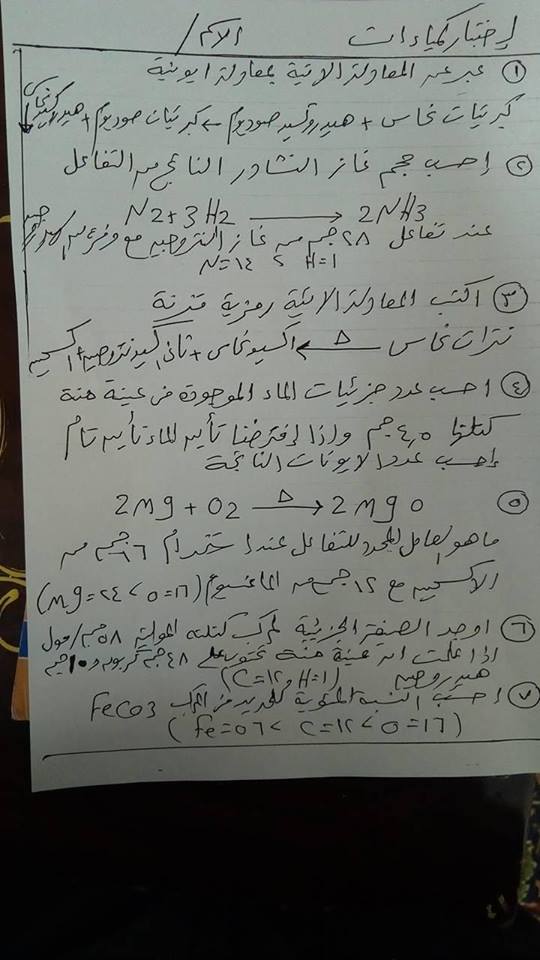 إختبار كمياء ات الاسم /
① عبر عن المعادلة الاتية بمعادلة ايونية
كبريتات نحاس + هيدروكسيد صوديوم ← كبريتات صوديوم + هيدروكسيد نحاس ↓
② إحسب حجم غاز النشادر الناتج من التفاعل
N2 + 3H2 → 2NH3
عند تفاعل ٢٨ جم من غاز النتروجين مع وفرة من
N=١٤ , H=1
③ اكتب المعادلة الاتية رمزية متزنة
نترات نحاس △ ← اكسيد نحاس + ثاني اكسيد نتروجين + اكسجين
④ احسب عدد جزئيات الماء الموجودة فى عينة منة
كتلتها ٤,٥ جم واذا إفترضنا تأين الماء تأين تام
إحسب عدد الايونات الناتجة
⑤ 2Mg + O2 △ → 2MgO
ما هو العامل المحدد للتفاعل عند استخدام ١٦ جم من
الاكسجين مع ١٢ جم من الماغنسيوم (Mg=٢٤ , O=١٦)
⑥ اوجد الصيغة الجزيئية لمركب كتلته المولية ٥٨ جم/مول
اذا علمت ان عينة منة تحتوى على ٤٨ جم كربون و ١٠ جم
هيدروجين (C=١٢ , H=1)
⑦ إحسب النسبة المئوية للحديد فى المركب FeCO3
(Fe=٥٦ , C=١٢ , O=١٦)